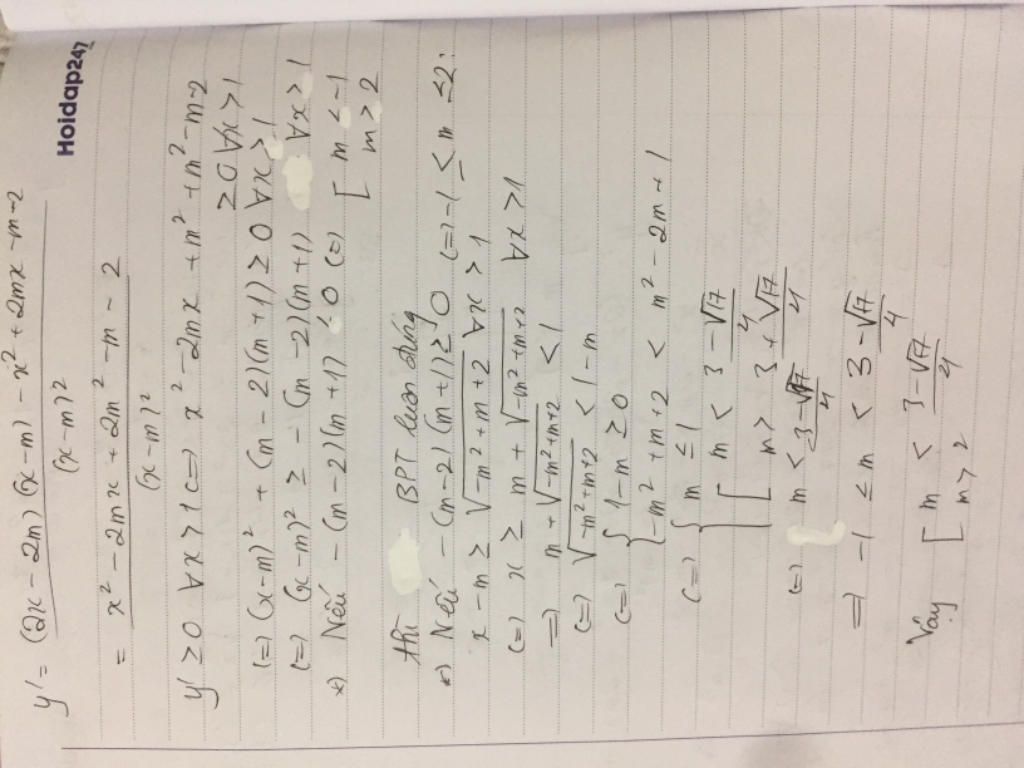 Hoidap247
y' = \frac{(2x - 2m)(x-m) - x^2 + 2mx - m - 2}{(x-m)^2}
= \frac{x^2 - 2mx + 2m^2 - m - 2}{(x-m)^2}
y' ≥ 0 ∀x > 1 <=> x^2 - 2mx + m^2 + m^2 - m - 2
≥ 0 ∀x > 1
<=> (x-m)^2 + (m-2)(m+1) ≥ 0 ∀x > 1
<=> (x-m)^2 ≥ - (m-2)(m+1) ∀x > 1
*) Nếu - (m-2)(m+1) < 0 <=> [ m < -1
m > 2
thì BPT luôn đúng
*) Nếu - (m-2)(m+1) ≥ 0 <=> -1 ≤ m ≤ 2:
x - m ≥ \sqrt{-m^2+m+2} ∀x > 1
<=> x ≥ m + \sqrt{-m^2+m+2} ∀x > 1
=> m + \sqrt{-m^2+m+2} < 1
<=> \sqrt{-m^2+m+2} < 1 - m
<=> { 1 - m ≥ 0
-m^2 + m + 2 < m^2 - 2m + 1
<=> { m ≤ 1
[ m < \frac{3 - \sqrt{17}}{4}
m > \frac{3 + \sqrt{17}}{4}
<=> m < \frac{3 - \sqrt{17}}{4}
=> -1 ≤ m < \frac{3 - \sqrt{17}}{4}
Vậy [ m < \frac{3 - \sqrt{17}}{4}
m > 2